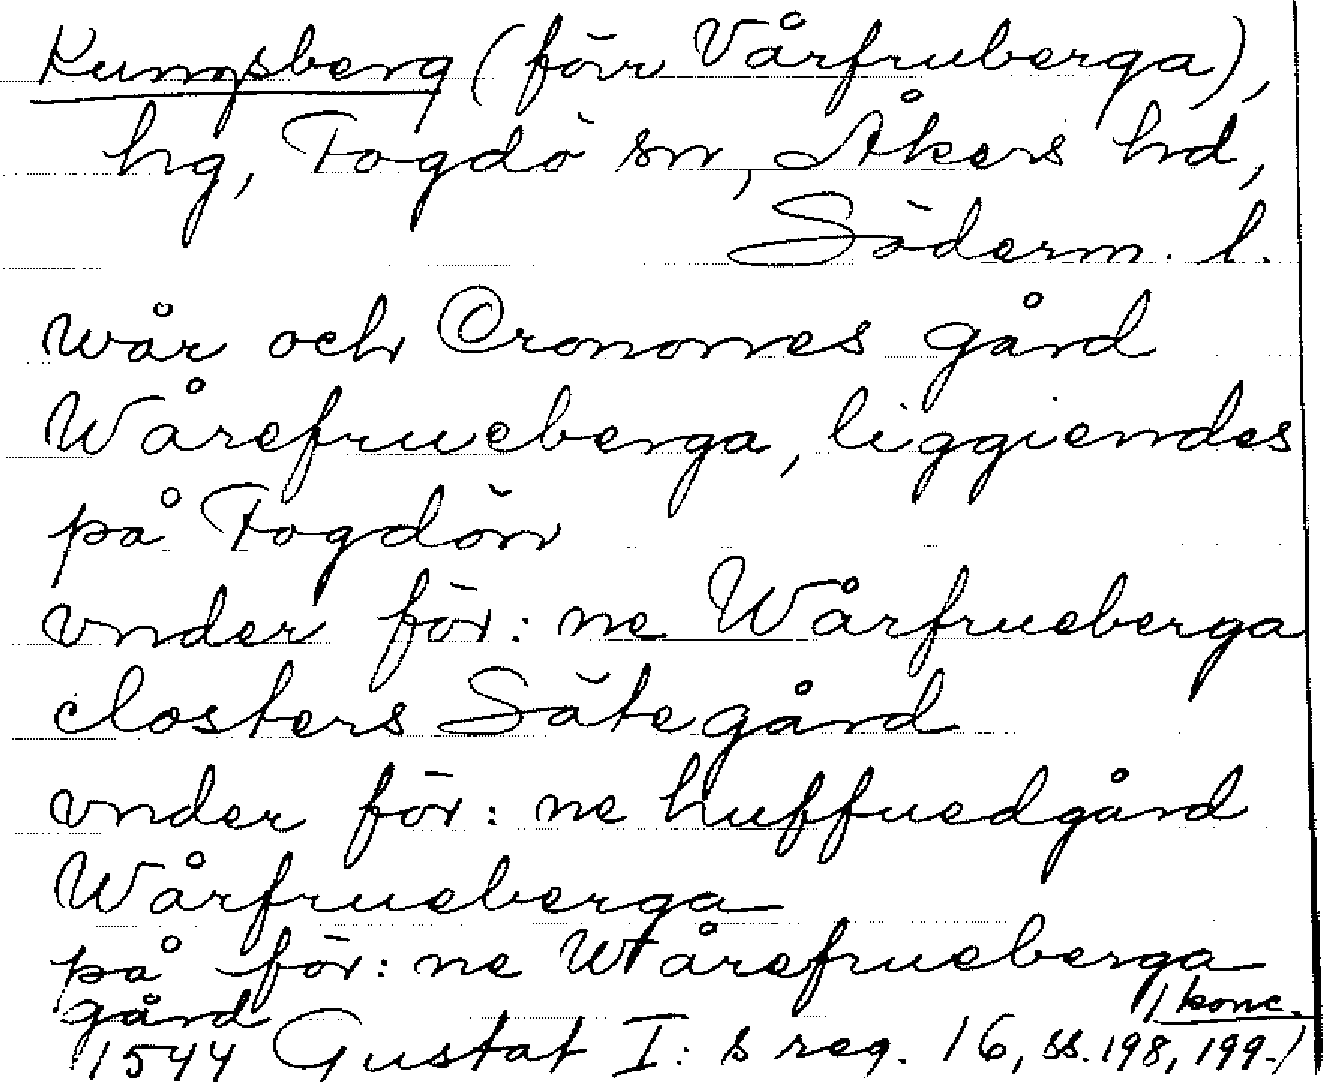 Kungsberg (förr Vårfruberga),
hg, Fogdö sn, Åkers hd,
Söderm. l.
wår och Cronones gård
Wårefrueberga, liggiendes
på Fogdön
vnder för: ne Wårfrueberga
closters Sätegård
vnder för: ne huffuedgård
Wårfrueberga
på för: ne Wårefrueberga
gård
/konc.
1544 Gustaf I: s reg. 16, ss. 198, 199./